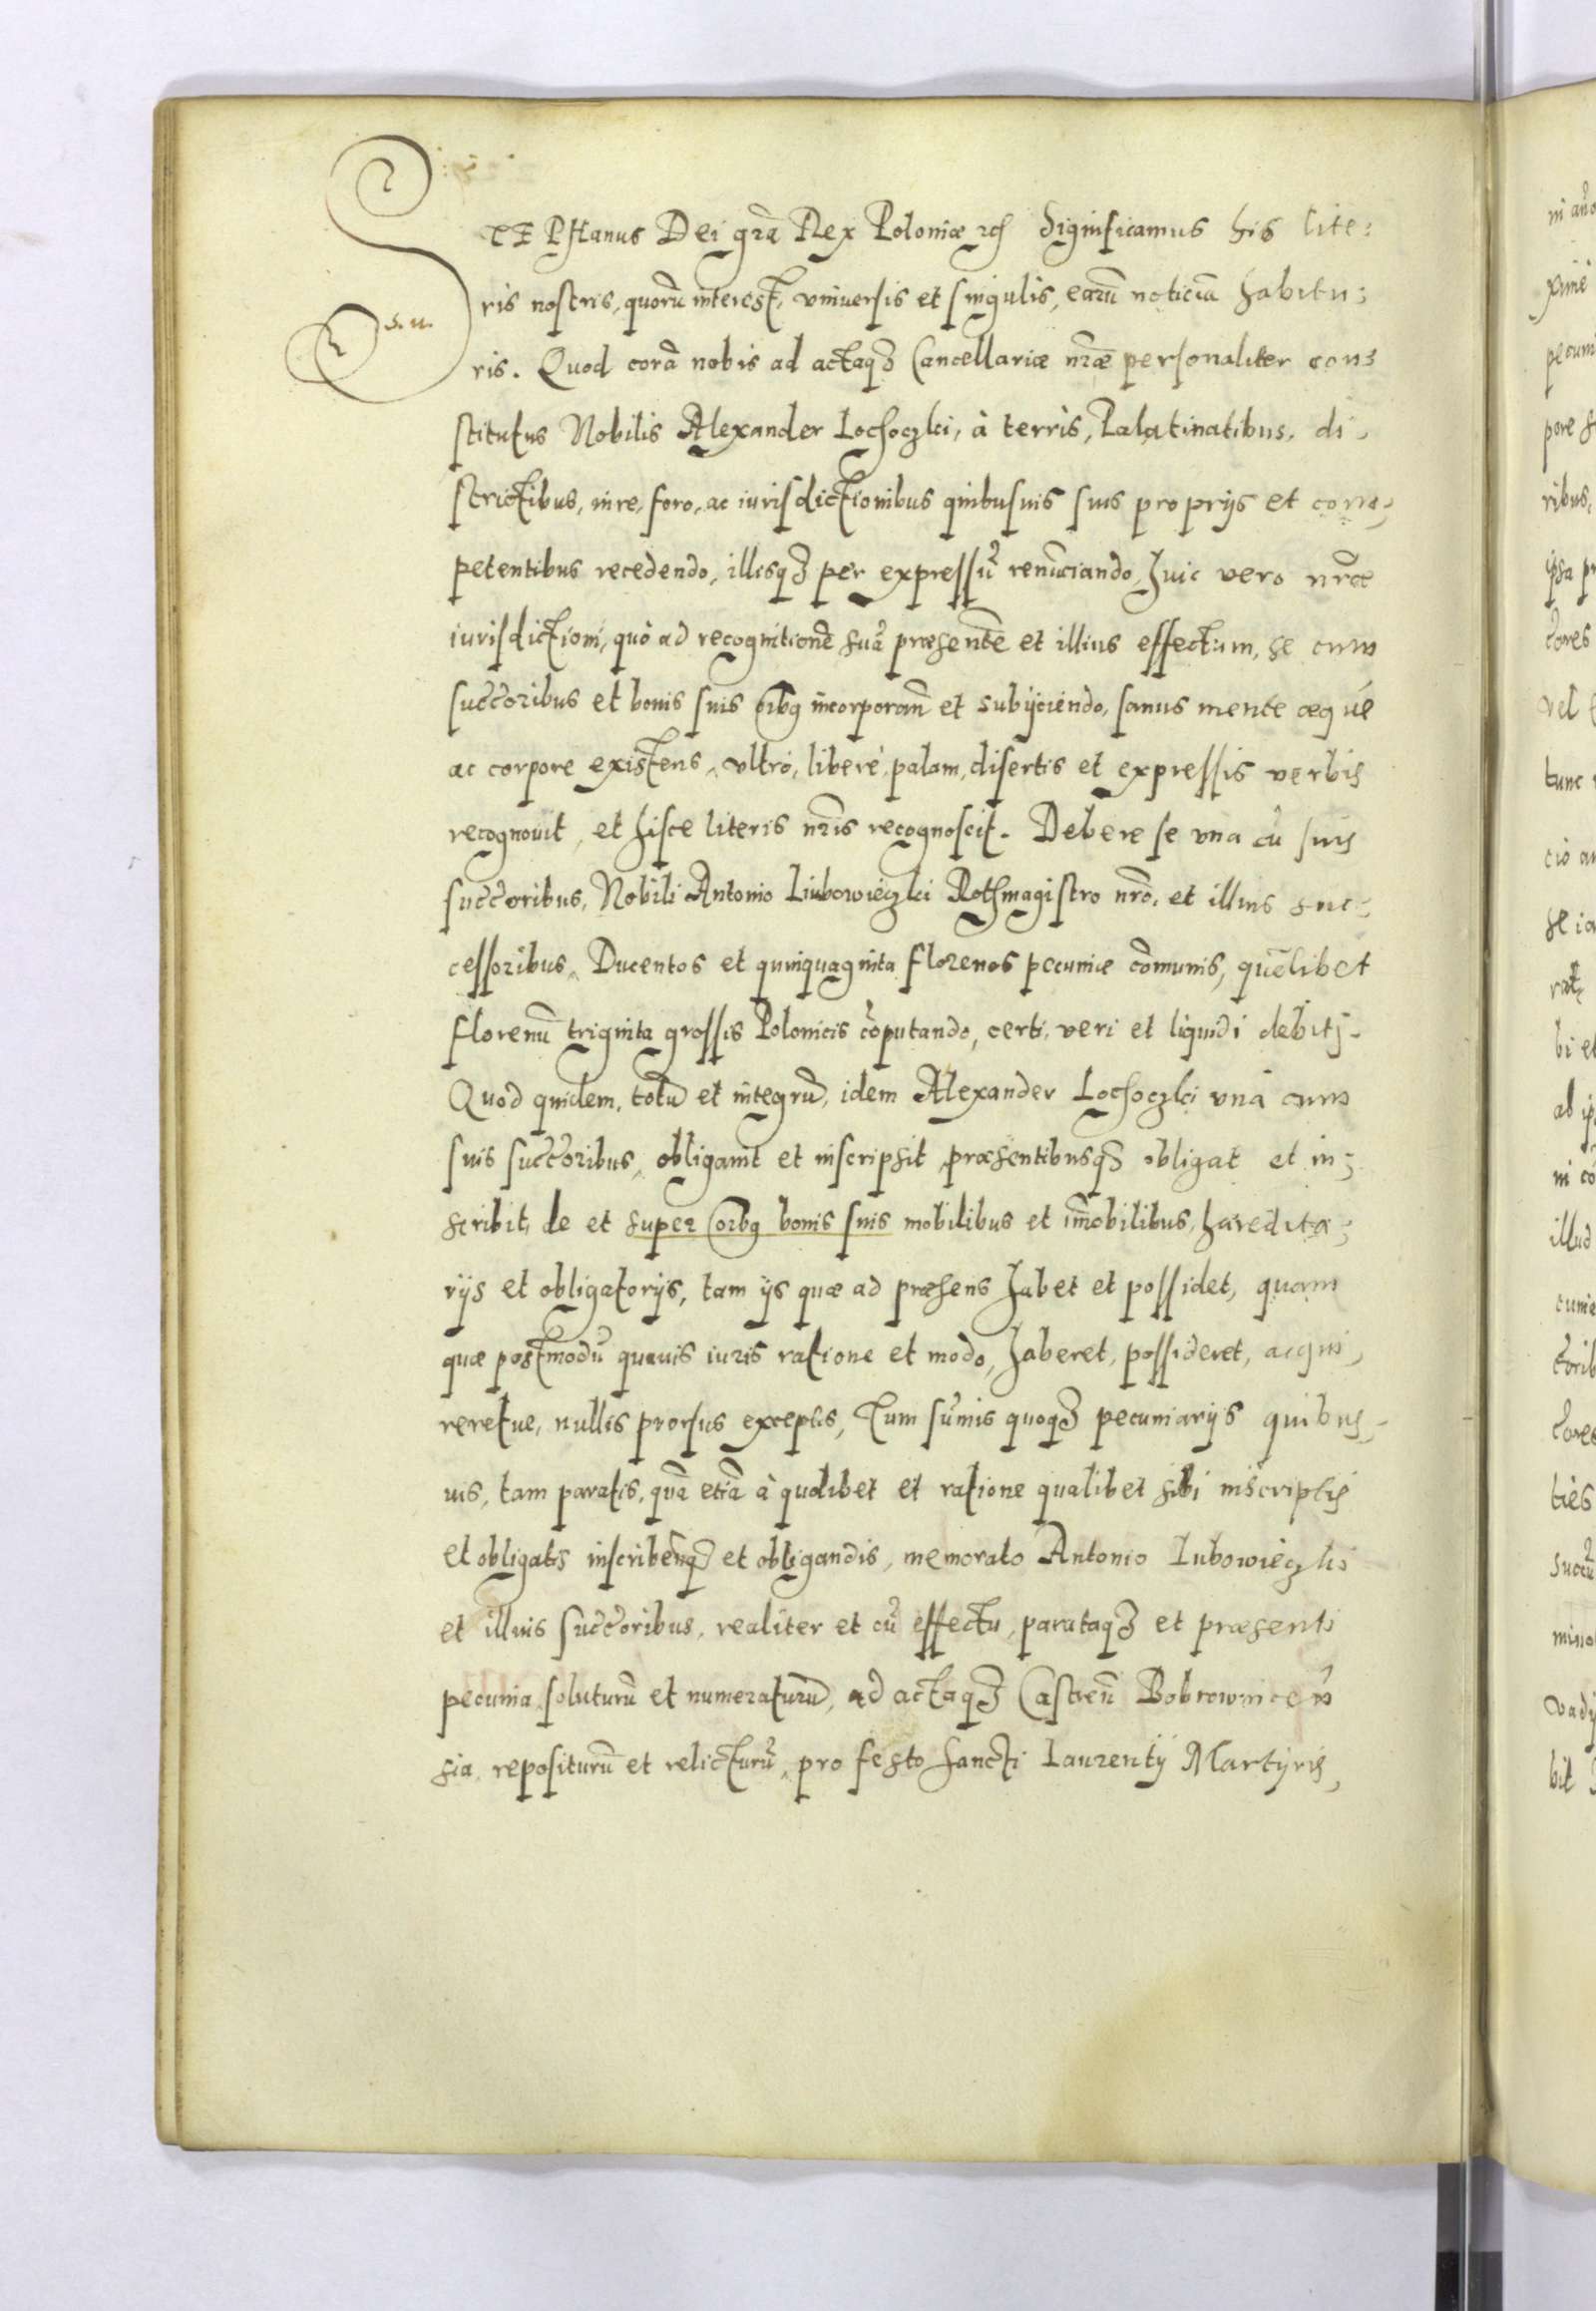 STEPHanus Dei gr̃a Rex Poloniæ ꝛcꝭ Significamus his lite:
ris nostris, quorũ interest, vniuersis et singulis, earũ noticiã habitu:
s. u.
ris. Quod corã nobis ad actaqꝫ Cancellariæ nr̃æ personaliter con:
stitutus Nobilis Alexander Lochoczki, à terris, Palatinatibus, di,
strictibus, iure, foro, ac iurisdictionibus quibusuis suis proprijs et com:
petentibus recedendo, illisqꝫ per expressũ renũciando, huic vero nr̃æ
iurisdictioni, quò ad recognitionẽ suã præsentẽ et illius effectum, se cum
succ̃oribus et bonis suis oĩbꝯ incorporan̄ et subijciendo, sanus mente æque
ac corpore existens, vltrò, liberè, palam, disertis et expressis verbis
recognouit, et hisce literis nr̃is recognoscit. Debere se vna cũ suis
succ̃oribus, Nobili Antonio Liubowieczki Rothmagistro nr̃o, et illius suc:
cessoribus, Ducentos et quinquaginta florenos pecuniæ cõmunis, quẽlibet
florenũ triginta grossis Polonicis cõputando, certi, veri et liquidi debiti.
Quod quidem, totũ et integrũ, idem Alexander Lochoczki vnà cum
suis succ̃oribus, obligauit et inscripsit, præsentibusqꝫ obligat et in:
scribit, de et super oĩbꝯ bonis suis mobilibus et im̃obilibus, hæredita:
rijs et obligatorijs, tam ijs quæ ad præsens habet et possidet, quam
quæ postmodũ quauis iuris ratione et modo, haberet, possideret, acqui,
reretue, nullis prorsus exceptis, Tum sũmis quoqꝫ pecuniarijs quibus,
uis, tam paratis, quã etiã à quolibet et ratione qualibet sibi inscriptis
et obligatis inscribẽnꝗ et obligandis, memorato Antonio Lubowieczki
et illius succ̃oribus, realiter et cũ effectu, parataqꝫ et præsenti
pecunia soluturũ et numeraturũ, ad actaqꝫ Castreñ Bobrowniceñ
sia, repositurũ et relicturũ, pro festo Sancti Laurentij Martyris,